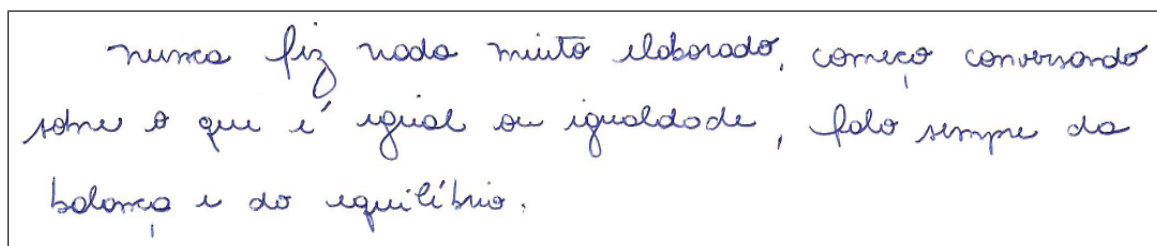 nunca fiz nada muito elaborado, começo conversando
sobre o que é igual ou igualdade, falo sempre da
balança e do equilíbrio.